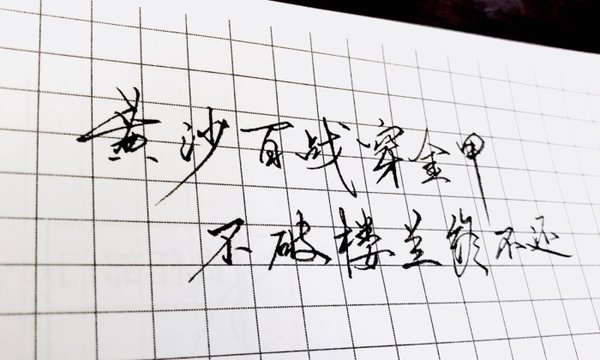 黄沙百战穿金甲
不破楼兰誓不还